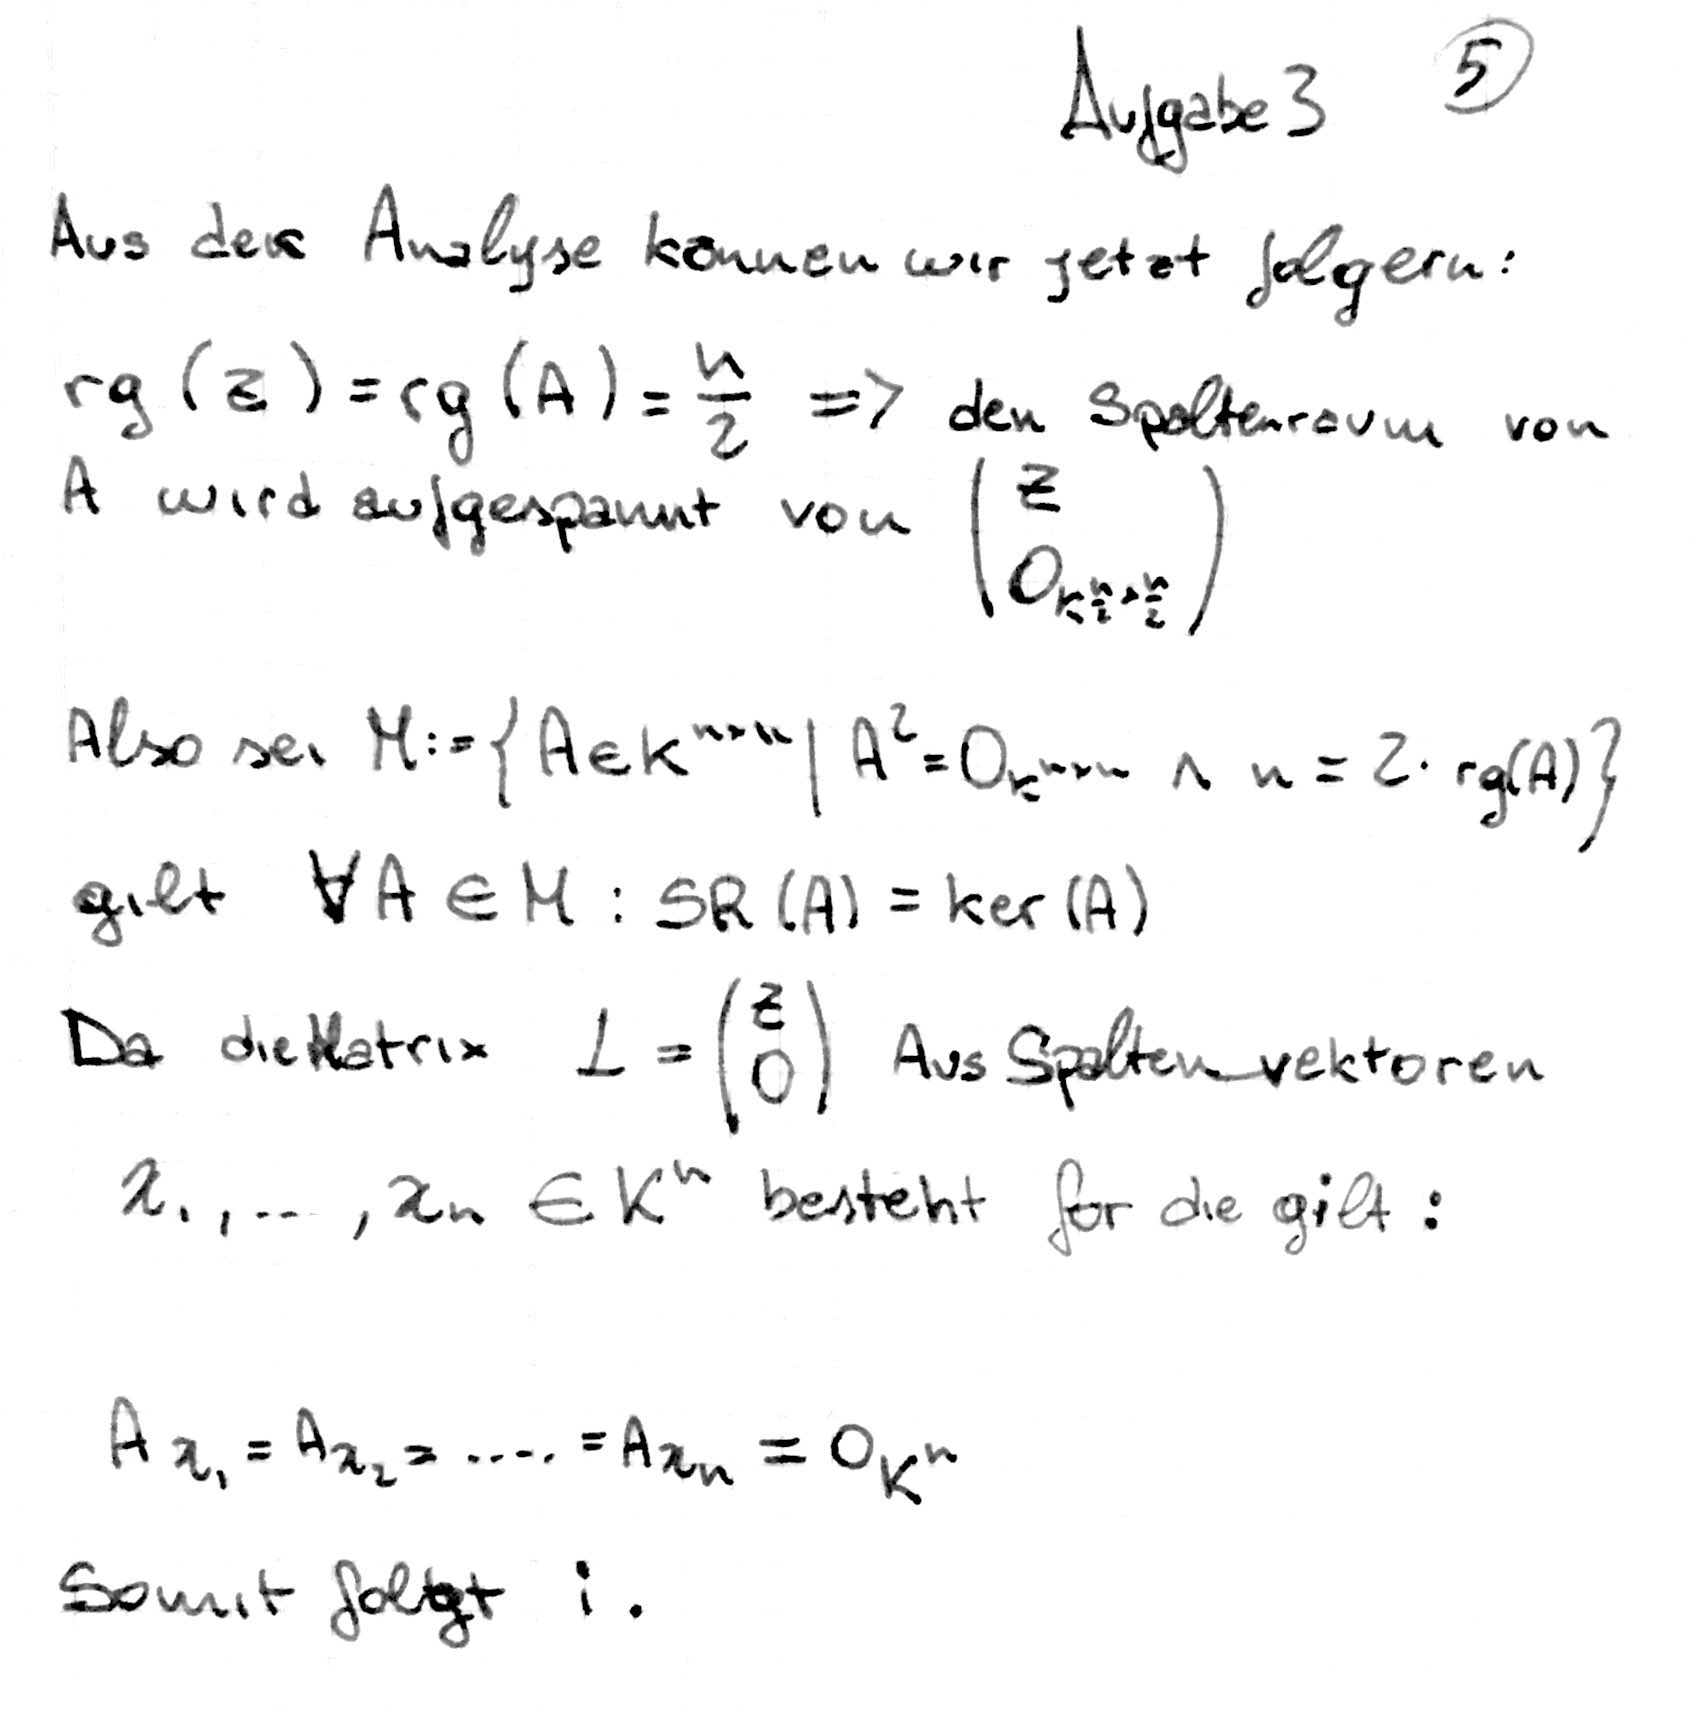 Aufgabe 3 5
Aus der Analyse können wir jetzt folgern:
rg (Z) = rg (A) = n/2 => den Spaltenraum von
A wird aufgespannt von (Z
0_{K^{n/2 × n/2}})
Also sei M := {A ∈ K^{n×n} | A² = 0_{K^{n×n}} ∧ n = 2 · rg(A)}
gilt ∀ A ∈ M : SR (A) = ker (A)
Da die Matrix L = (Z 0) Aus Spaltenvektoren
x₁, ..., xₙ ∈ Kⁿ besteht für die gilt :
A x₁ = A x₂ = ..... = A xₙ = 0_{Kⁿ}
Somit folgt i.